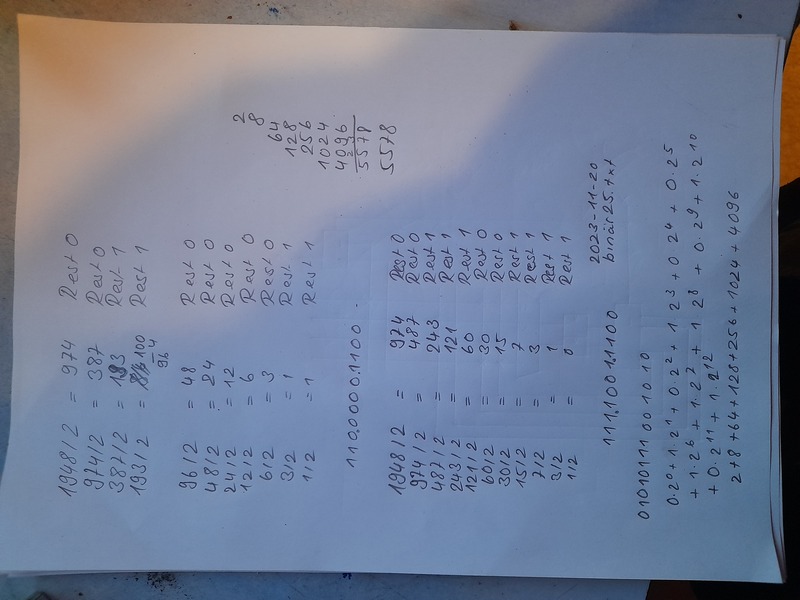 1948/2 = 974 Rest 0
974/2 = 387 Rest 0
387/2 = 193 Rest 1
193/2 = 100 Rest 1
-4
96
96/2 = 48 Rest 0
48/2 = 24 Rest 0
24/2 = 12 Rest 0
12/2 = 6 Rest 0
6/2 = 3 Rest 0
3/2 = 1 Rest 1
1/2 = 1 Rest 1
2
8
64
128
256
1024
4096
5578
5578
110.0000.1100
1948/2 = 974 Rest 0
974/2 = 487 Rest 0
487/2 = 243 Rest 1
243/2 = 121 Rest 1
121/2 = 60 Rest 1
60/2 = 30 Rest 0
30/2 = 15 Rest 0
15/2 = 7 Rest 1
7/2 = 3 Rest 1
3/2 = 1 Rest 1
1/2 = 0 Rest 1
111.1001.1100
2023-11-20
binär25.txt
0101011100 1010
0·2⁰+1·2¹+0·2²+1·2³+0·2⁴+0·2⁵
+1·2⁶+1·2⁷+1·2⁸+0·2⁹+1·2¹⁰
+0·2¹¹+1·2¹²
2+8+64+128+256+1024+4096